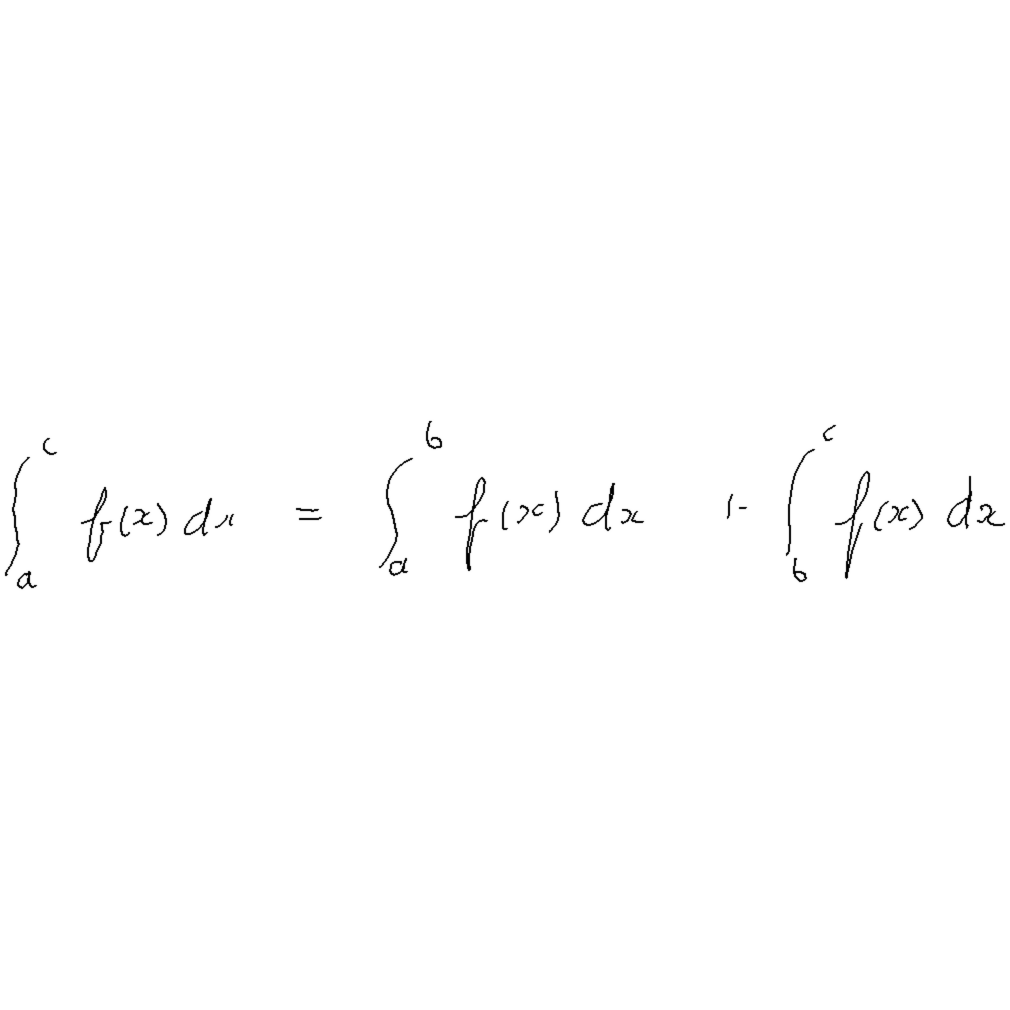 \int_a^c f(x) dx = \int_a^b f(x) dx + \int_b^c f(x) dx